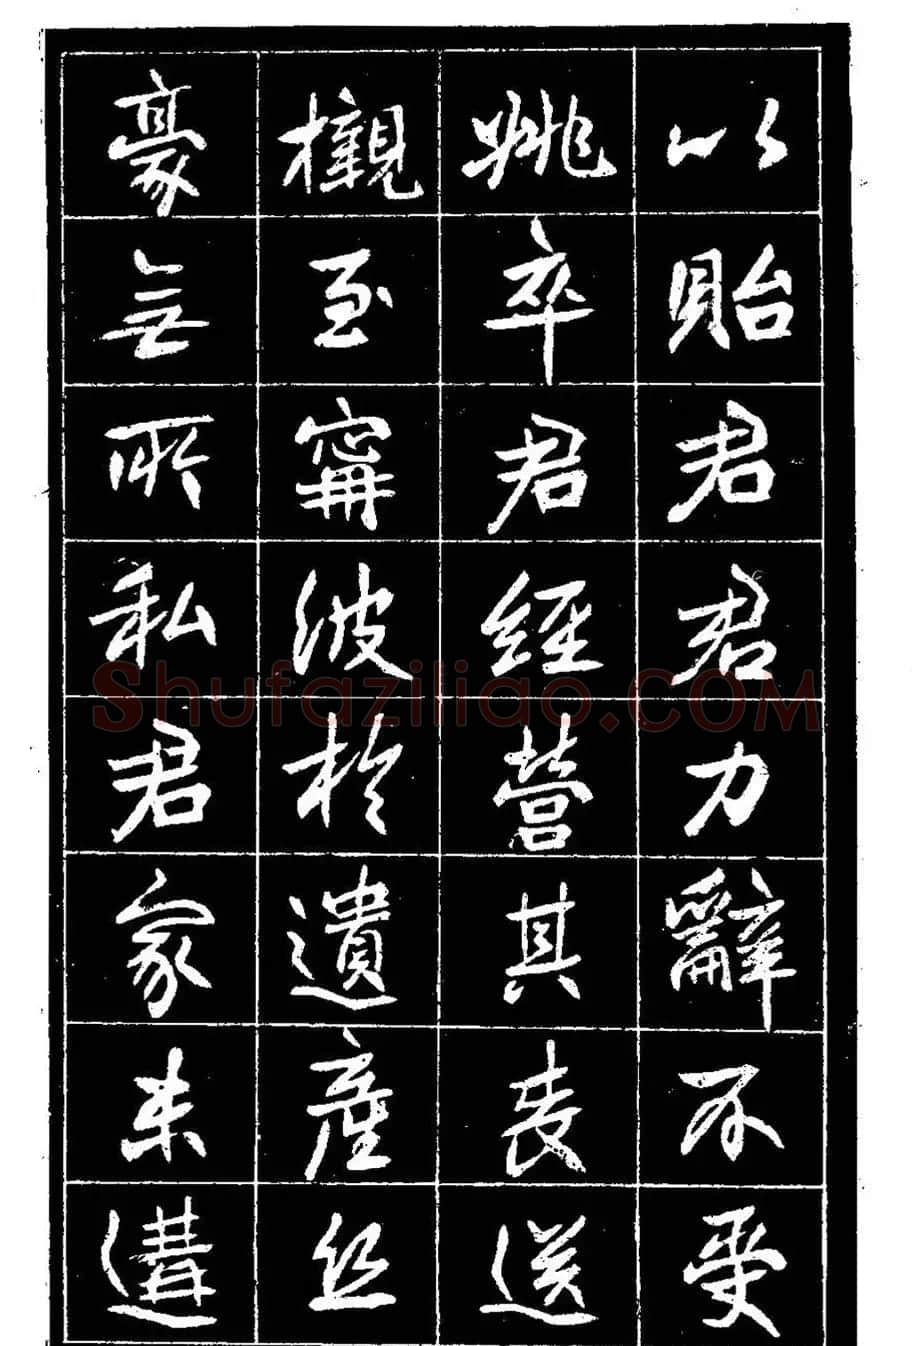 以貽君君力辭不受
姚卒君經營其喪送
櫬至寧波於遺產丝
豪無所私君家未遘
Shufaziliao.COM